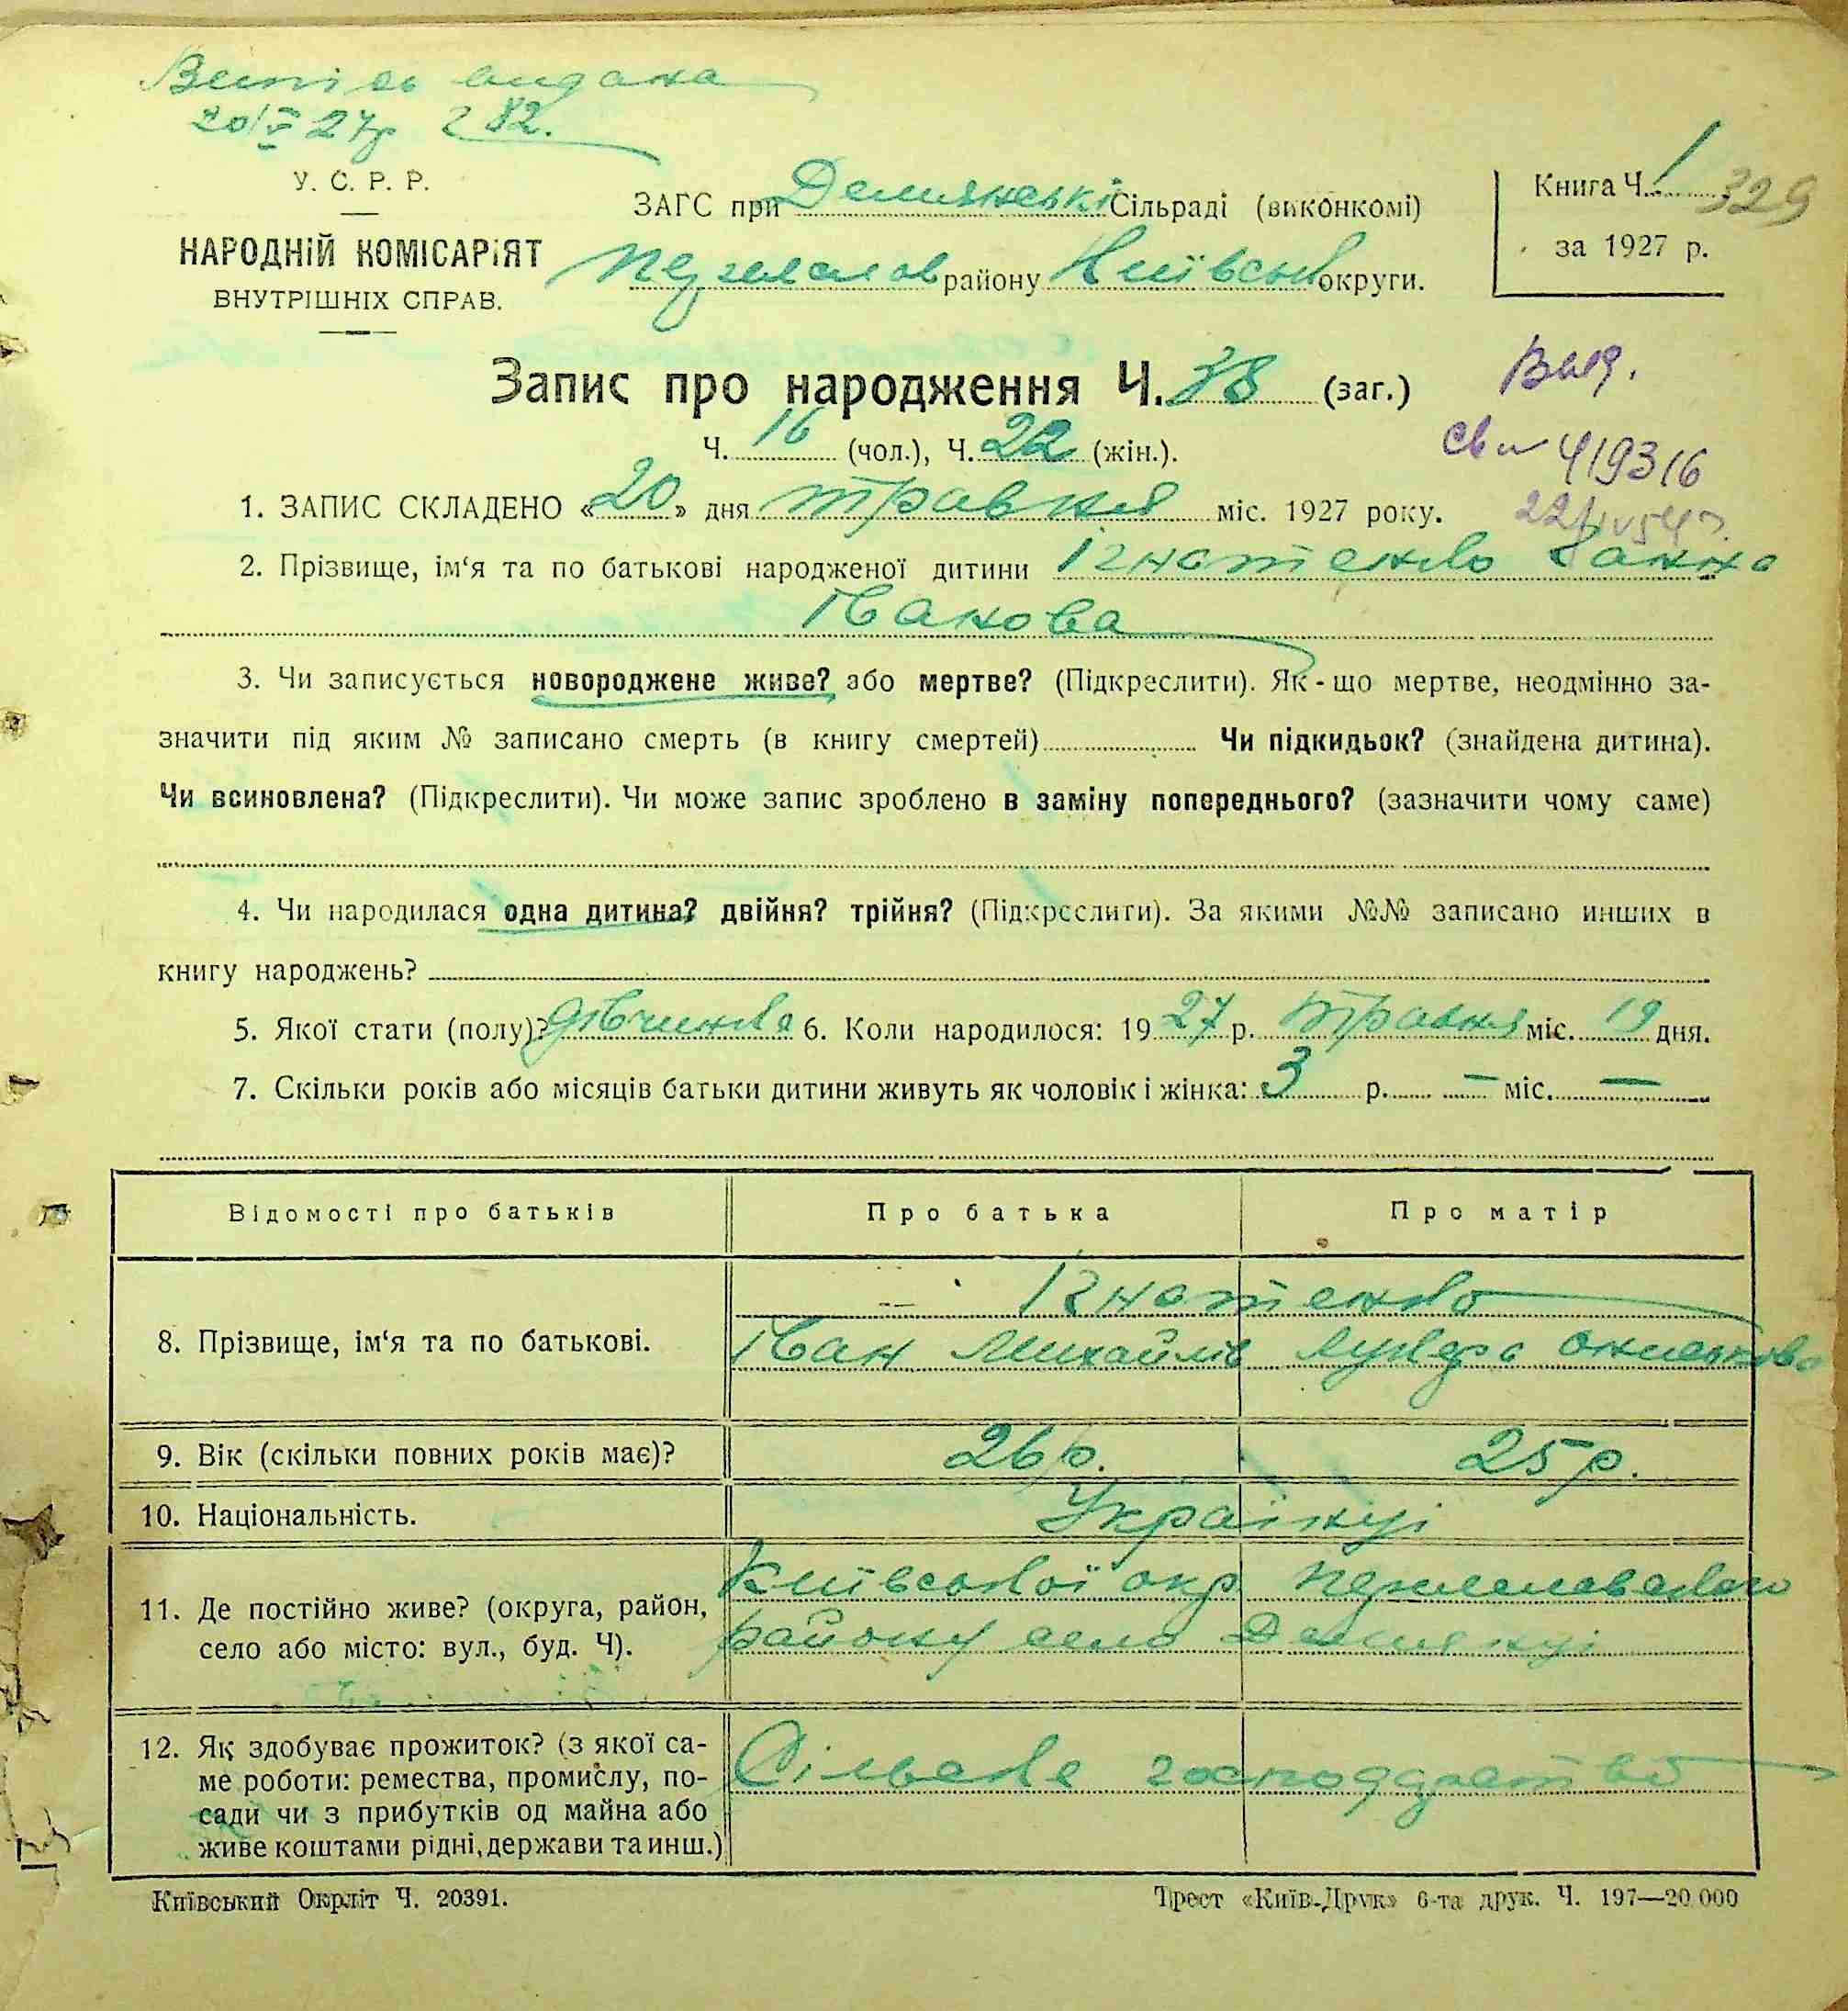 видана
20/V 27р 82.
У. С. Р. Р.
НАРОДНІЙ КОМІСАРІЯТ
ВНУТРІШНІХ СПРАВ.
ЗАГС при Демянській Сільраді (виконкомі)
району Київської округи.
Книга Ч. 1 329
за 1927 р.
Запис про народження Ч. 38 (заг.)
Ч. 16 (чол.), Ч. 22 (жін.).
419316
1. ЗАПИС СКЛАДЕНО «20» дня травня міс. 1927 року.
2. Прізвище, ім‘я та по батькові народженої дитини Ігнатенко Ганна
Іванова
3. Чи записується новороджене живе? або мертве? (Підкреслити). Як-що мертве, неодмінно за-
значити під яким № записано смерть (в книгу смертей) Чи підкидьок? (знайдена дитина).
Чи всиновлена? (Підкреслити). Чи може запис зроблено в заміну попереднього? (зазначити чому саме)
4. Чи народилася одна дитина? двійня? трійня? (Підкреслити). За якими №№ записано инших в
книгу народжень?
5. Якої стати (полу)? дівчинка 6. Коли народилося: 1927 р. травня міс. 19 дня.
7. Скільки років або місяців батьки дитини живуть як чоловік і жінка: 3 р. — міс. —
Відомості про батьків Про батька Про матір
8. Прізвище, ім‘я та по батькові. Ігнатенко
Іван Михайлів
9. Вік (скільки повних років має)? 26 р. 25 р.
10. Національність. Українці
11. Де постійно живе? (округа, район,
село або місто: вул., буд. Ч).
Київської окр
району село Демянці
12. Як здобуває прожиток? (з якої са-
ме роботи: ремества, промислу, по-
сади чи з прибутків од майна або
живе коштами рідні, держави та инш.)
Сільське господарство
Київський Окрліт Ч. 20391.
Трест «Київ-Друк» 6-та друк. Ч. 197—20.000